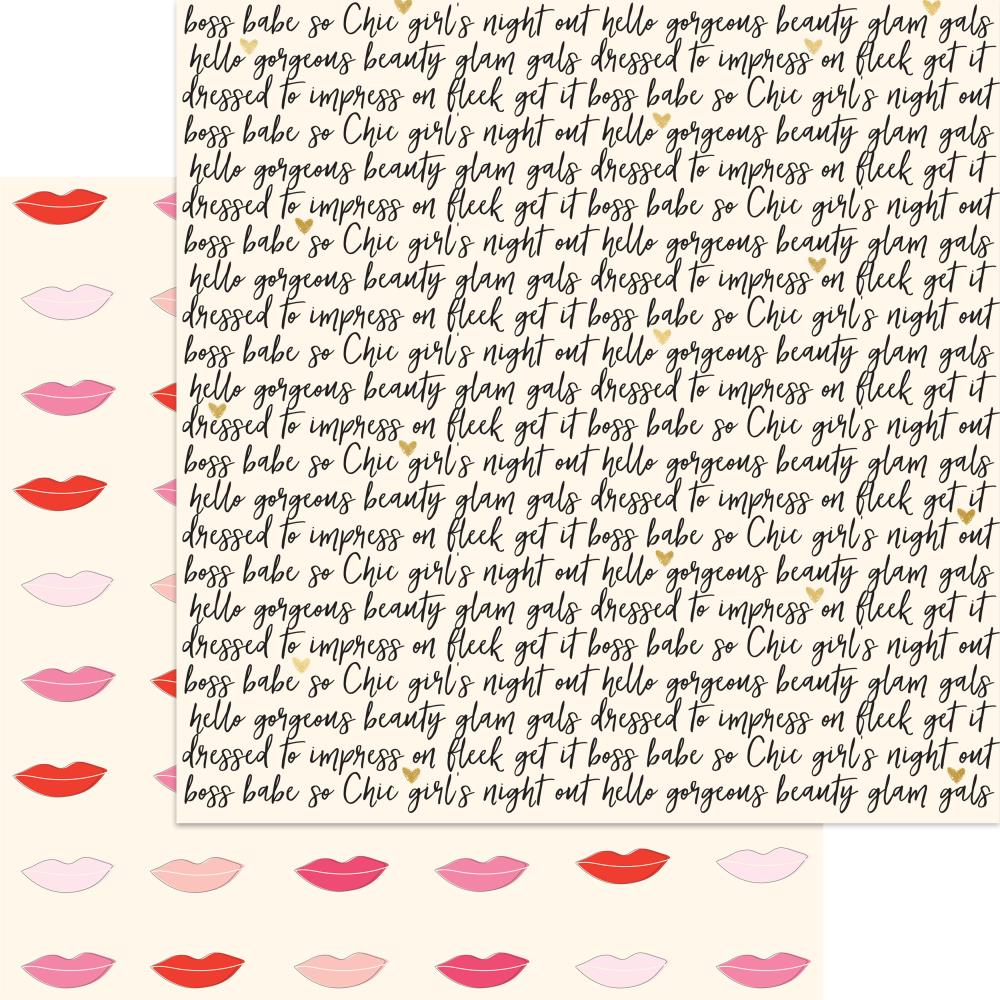 boss babe so Chic girl's night out hello gorgeous beauty glam gals
hello gorgeous beauty glam gals dressed to impress on fleek get it
dressed to impress on fleek get it boss babe so Chic girl's night out
boss babe so Chic girl's night out hello gorgeous beauty glam gals
hello gorgeous beauty glam gals dressed to impress on fleek get it
dressed to impress on fleek get it boss babe so Chic girl's night out
boss babe so Chic girl's night out hello gorgeous beauty glam gals
hello gorgeous beauty glam gals dressed to impress on fleek get it
dressed to impress on fleek get it boss babe so Chic girl's night out
boss babe so Chic girl's night out hello gorgeous beauty glam gals
hello gorgeous beauty glam gals dressed to impress on fleek get it
dressed to impress on fleek get it boss babe so Chic girl's night out
boss babe so Chic girl's night out hello gorgeous beauty glam gals
hello gorgeous beauty glam gals dressed to impress on fleek get it
dressed to impress on fleek get it boss babe so Chic girl's night out
boss babe so Chic girl's night out hello gorgeous beauty glam gals
hello gorgeous beauty glam gals dressed to impress on fleek get it
dressed to impress on fleek get it boss babe so Chic girl's night out
boss babe so Chic girl's night out hello gorgeous beauty glam gals
hello gorgeous beauty glam gals dressed to impress on fleek get it
dressed to impress on fleek get it boss babe so Chic girl's night out
boss babe so Chic girl's night out hello gorgeous beauty glam gals